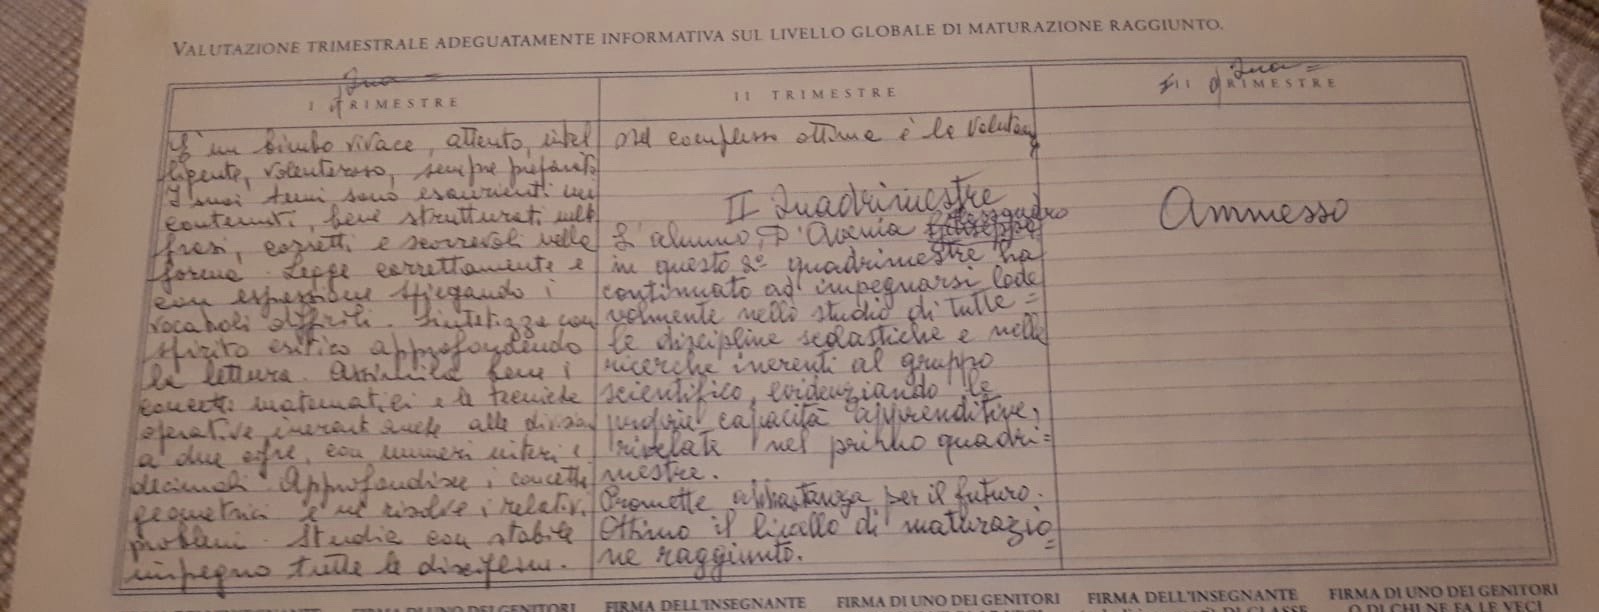 VALUTAZIONE TRIMESTRALE ADEGUATAMENTE INFORMATIVA SUL LIVELLO GLOBALE DI MATURAZIONE RAGGIUNTO.
Qua=
I TRIMESTRE
È un bimbo vivace, attento, intel
ligente, volenteroso, sempre preparato
I suoi temi sono esaurienti nei
contenuti, bene strutturati nelle
frasi, corretti e scorrevoli nella
forma. Legge correttamente e
con espressione spiegando i
vocaboli difficili. Sintetizza con
spirito critico approfondendo
la lettura. Assimila bene i
concetti matematici e le tecniche
operative inerenti anche alla divisione
a due cifre, con numeri interi e
decimali. Approfondisce i concetti
geometrici e ne risolve i relativi
problemi. Studia con stabile
impegno tutte le discipline.
II TRIMESTRE
Nel complesso ottima è la valutaz
II Quadrimestre
L'alunno, D'Avenia
in questo 2º quadrimestre ha
continuato ad impegnarsi lode
volmente nello studio di tutte=
le discipline scolastiche e nelle
ricerche inerenti al gruppo
scientifico, evidenziando le
proprie capacità apprenditive,
rivelate nel primo quadri=
mestre.
Promette abbastanza per il futuro.
Ottimo il livello di maturazio
=
ne raggiunto.
Qua=
III TRIMESTRE
Ammesso
FIRMA DELL'INSEGNANTE
FIRMA DI UNO DEI GENITORI
FIRMA DELL'INSEGNANTE
FIRMA DI UNO DEI GENITORI
O DI CHI NE FA LE VECI